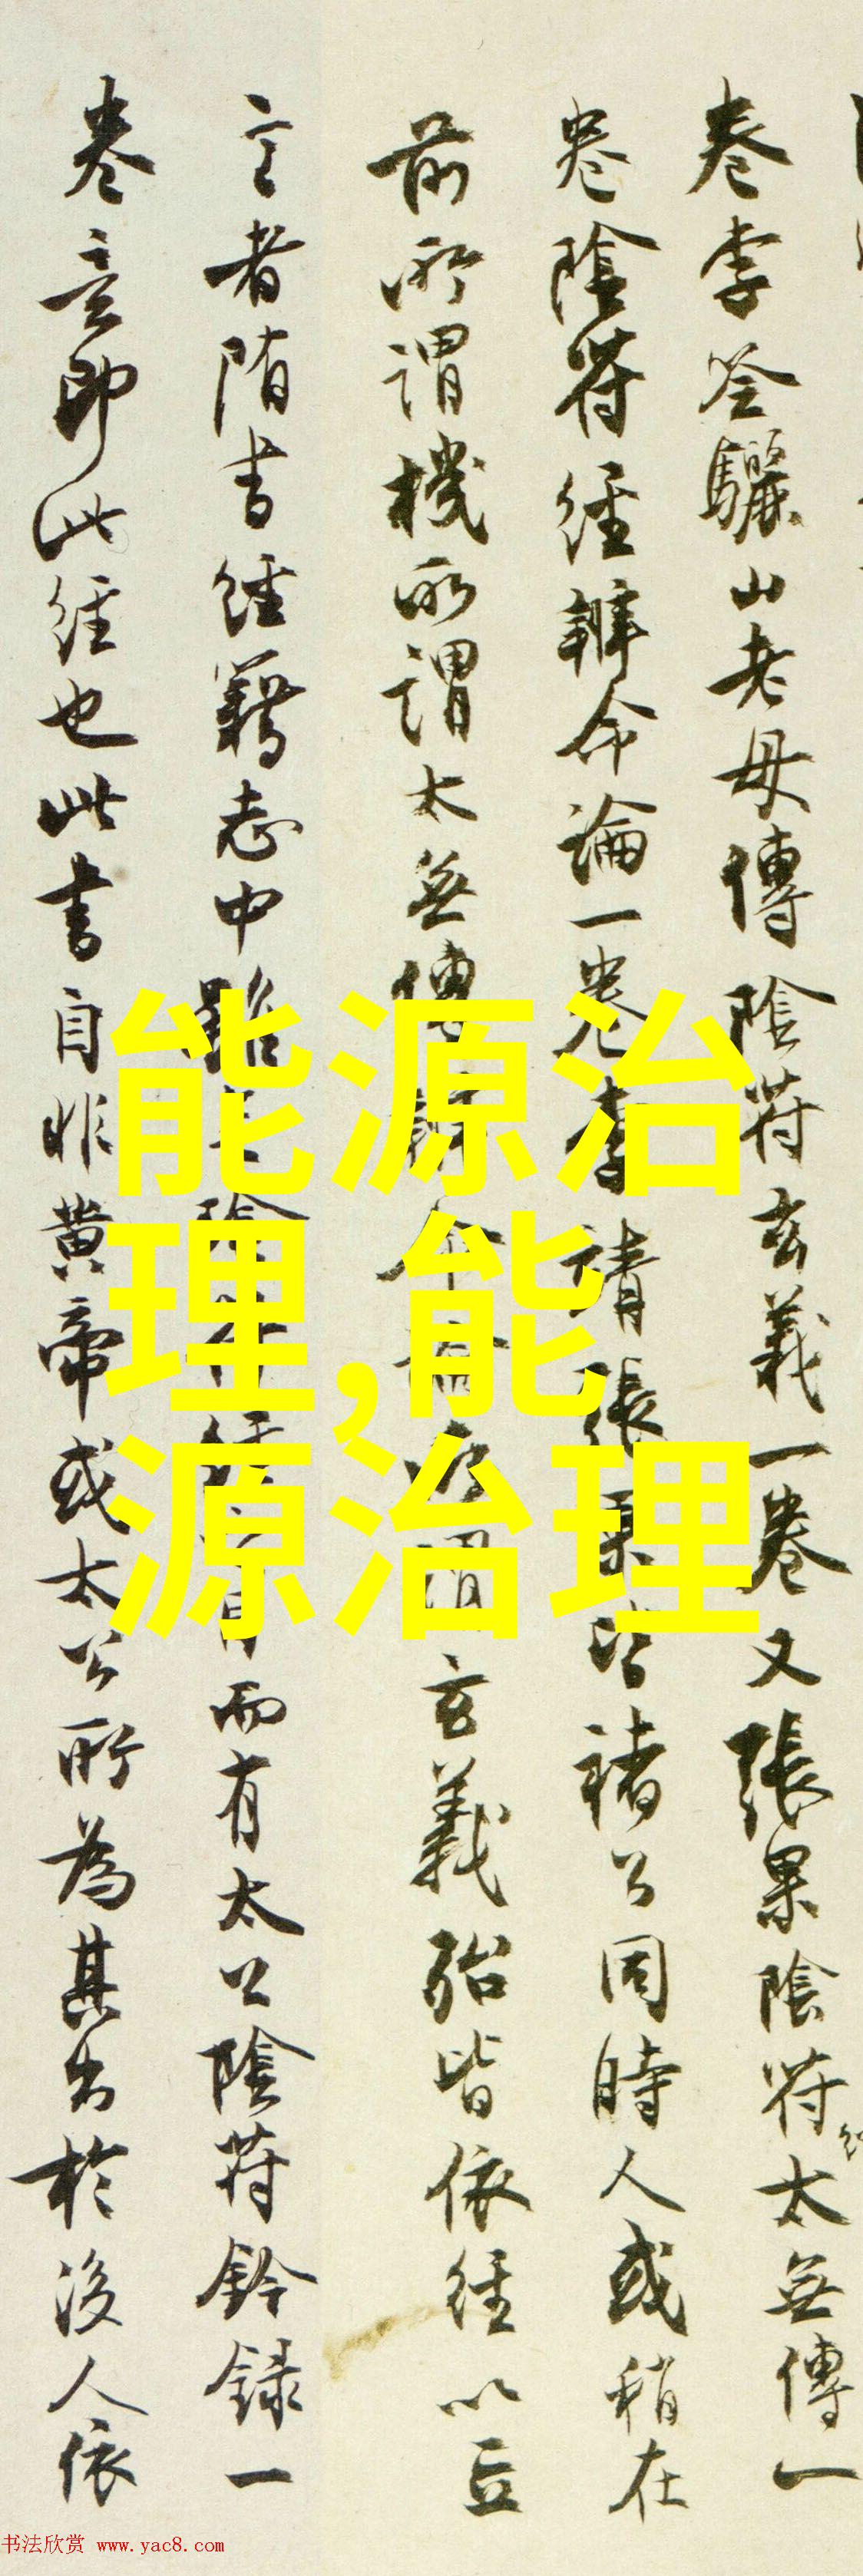 卷李筌驪山老母傳陰符玄義一卷又張果陰符太無傳一
卷陰符經辨命論一卷李靖張果皆褚公同時人或稍在
前所謂機所謂太無傳辨命論所謂玄義殆皆依經以立
言者隋書經籍志中雖無陰符經之目而有太公陰符鈐錄一
卷意即此經也此書自非黃帝或太公所為其出於後人依
能源治
理,能
源治理
书法欣赏 www.yac8.com